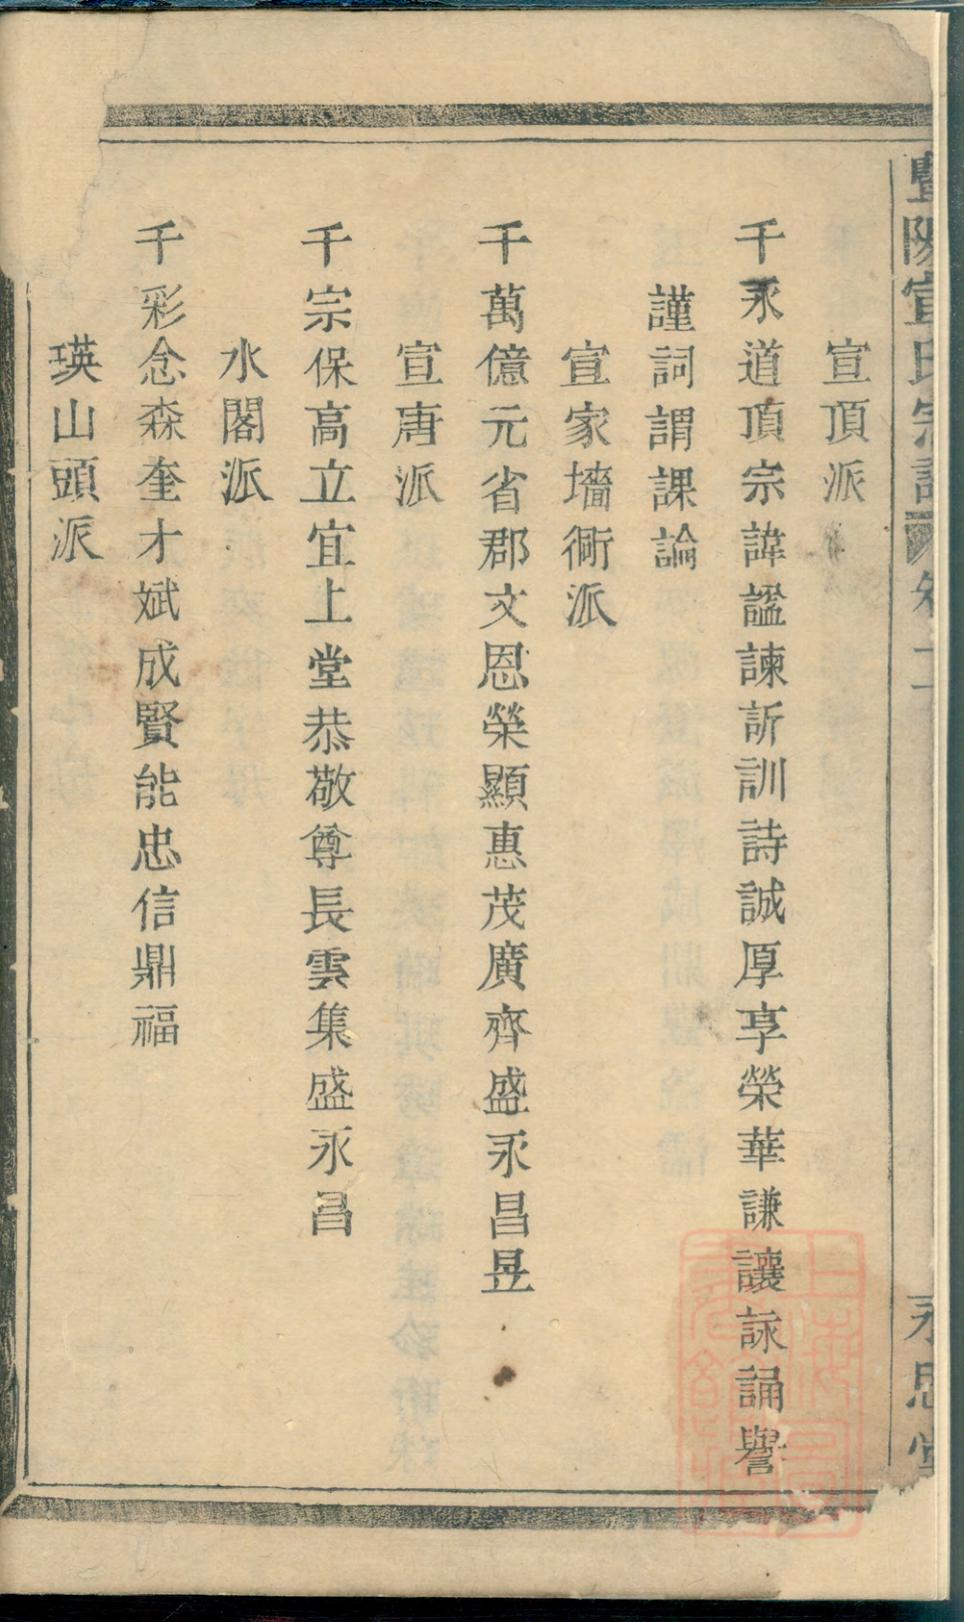 暨陽宣氏宗譜 卷二 永思堂
宣頂派
千永道頂宗諱謐諫訢訓詩誠厚享榮華謙讓詠誦譽
謹詞謂課論
宣家墻衕派
千萬億元省郡文恩榮顯惠茂廣齊盛永昌昱
宣唐派
千宗保高立宜上堂恭敬尊長雲集盛永昌
水閣派
千彩念森奎才斌成賢能忠信鼎福
瑛山頭派